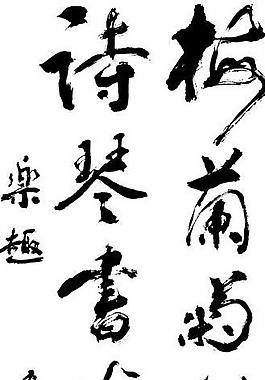 梅蘭菊
詩琴書
樂趣